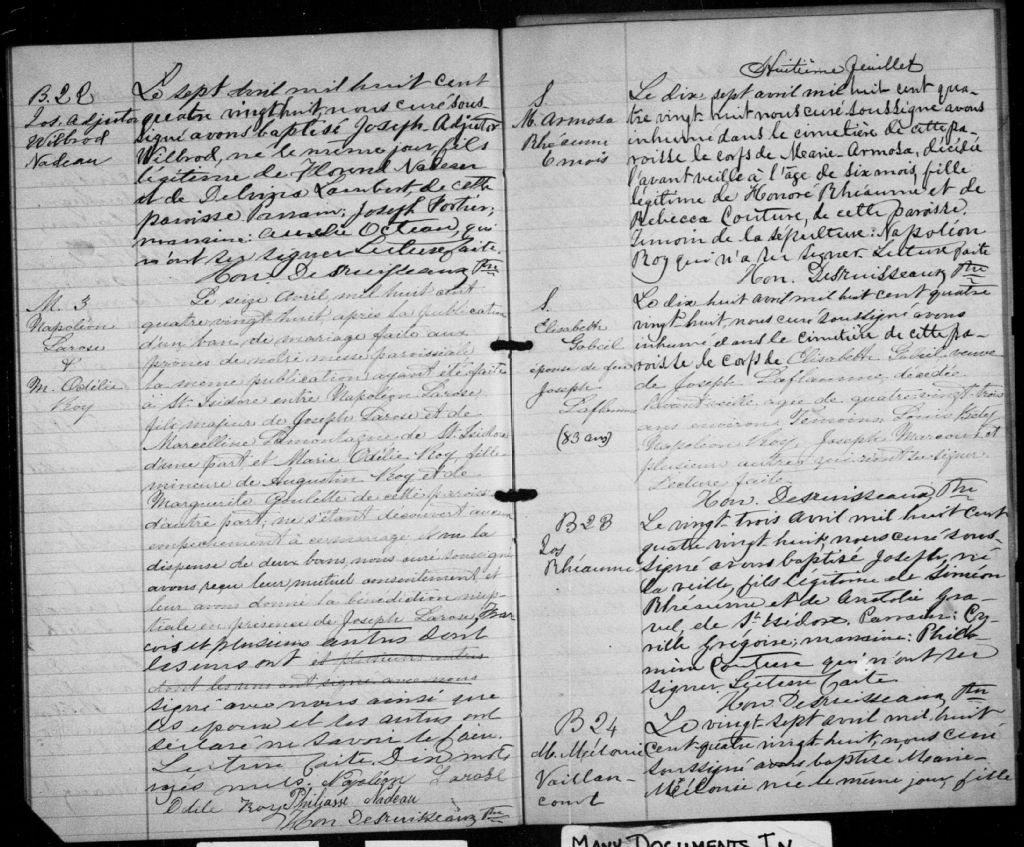 B. 22
Jos. Adjutor
Wilbrod
Nadeau
Le sept avril mil huit cent
quatre vingt huit, nous curé sous-
signé avons baptisé Joseph-Adjutor
Wilbrod, né le même jour, fils
légitime de Nadeau
et de Delvina Lambert de cette
paroisse Parrain: Joseph Fortier;
marraine: Aurélie Octeau, qui
n'ont su signer Lecture faite.
Hon. Desruisseaux Ptre
M. 3
Napoléon
Larose
&
M. Odélie
Roy
Le seize Avril, mil huit cent
quatre vingt huit, après la publication
d'un ban de mariage faite aux
prônes de notre messe paroissiale
la même publication ayant été faite
à St. Isidore entre Napoléon Larose,
fils majeur de Joseph Larose et de
Marcelline Lamontagne de St. Isidore
d'une part et Marie Odélie Roy fille
mineure de Augustin Roy et de
Marguerite Goulette de cette parois-
d'autre part, ne s'étant découvert aucun
empêchement à ce mariage et vu la
dispense de deux bans, nous curé soussigné
avons reçu leur mutuel consentement et
leur avons donné la bénédiction nup-
tiale en présence de Joseph Larose,
et plusieurs autres dont
les uns ont et plusieurs autres
dont les uns ont signé avec nous
signé avec nous ainsi que
les époux et les autres ont
déclaré ne savoir le faire.
Lecture faite. Dix mots
rayés nuls Napoléon Larose
Odile Roy Philiasse Nadeau
Hon Desruisseaux Ptre
Huitième feuillet
S.
M. Armosa
Rhéaume
6 mois
Le dix sept avril mil huit cent qua-
tre vingt huit nous curé soussigné avons
inhumé dans le cimetière de cette pa-
roisse le corps de Marie-Armosa, décédée
l'avant veille à l'âge de six mois, fille
légitime de Honoré Rhéaume et de
Rébecca Couture, de cette paroisse.
Témoin de la sépulture: Napoléon
Roy qui n'a su signer. Lecture faite
Hon. Desruisseaux Ptre
S.
Elisabeth
épouse de feu
Joseph
Laflamme
(83 ans)
Le dix huit avril mil huit cent quatre
vingt huit, nous curé soussigné avons
inhumé dans le cimetière de cette pa-
roisse le corps de Elisabeth veuve
de Joseph Laflamme, décédée
l'avant veille, agée de quatre vingt trois
ans environ. Témoins Louis
Napoléon Roy, Joseph Marcoux et
plusieurs autres qui n'ont su signer.
Lecture faite
Hon. Desruisseaux, Ptre
B 23
Jos
Rhéaume
Le vingt trois avril mil huit cent
quatre vingt huit, nous curé sous-
signé avons baptisé Joseph, né
la veille, fils légitime de Siméon
Rhéaume et de Anatolie Gra-
vel, de St Isidore. Parrain: Cy-
rille Grégoire; marraine: Philo-
mène Couture qui n'ont su
signer. Lecture faite
Hon Desruisseaux, Ptre
B 24
M. Mélonie
Vaillan-
court
Le vingt-sept avril mil huit
cent-quatre vingt huit, nous curé
soussigné avons baptisé Marie
née le même jour, fille
MANY DOCUMENTS IN